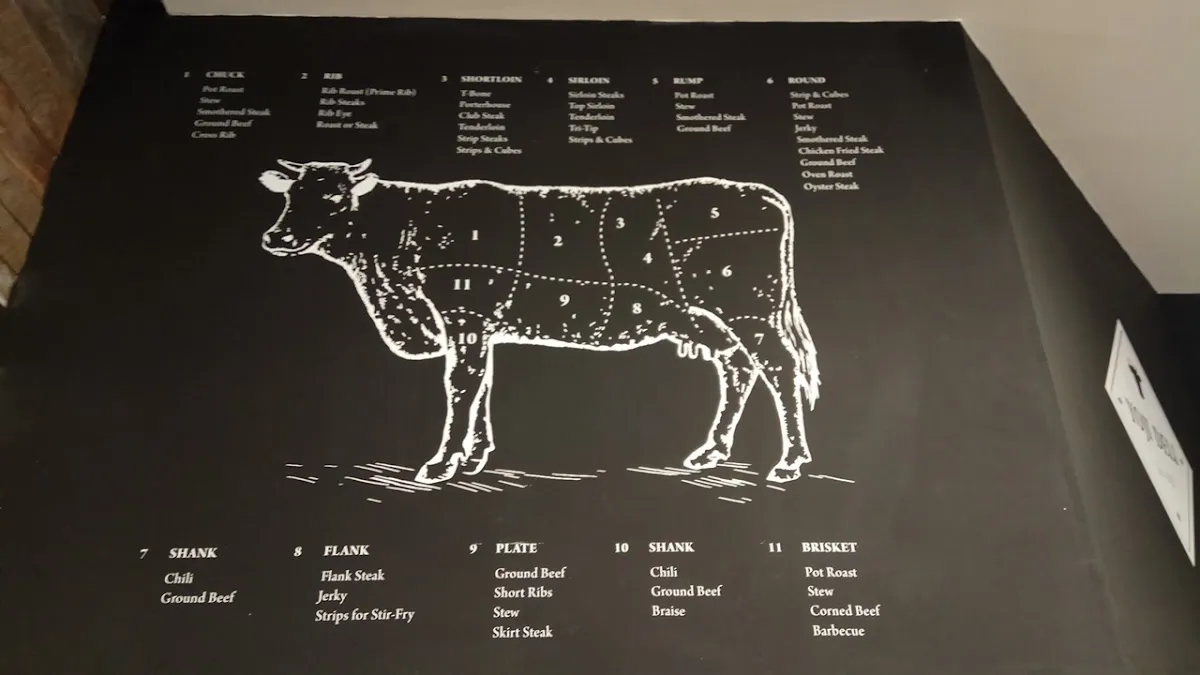 1 CHUCK
Pot Roast
Stew
Smothered Steak
Ground Beef
Cross Rib
2 RIB
Rib Roast (Prime Rib)
Rib Steaks
Rib Eye
Roast or Steak
3 SHORTLOIN
T-Bone
Porterhouse
Club Steak
Tenderloin
Strip Steaks
Strips & Cubes
4 SIRLOIN
Sirloin Steaks
Top Sirloin
Tenderloin
Tri-Tip
Strips & Cubes
5 RUMP
Pot Roast
Stew
Smothered Steak
Ground Beef
6 ROUND
Strip & Cubes
Pot Roast
Stew
Jerky
Smothered Steak
Chicken Fried Steak
Ground Beef
Oven Roast
Oyster Steak
1
2
3
4
5
6
11
9
8
10
7
7 SHANK
Chili
Ground Beef
8 FLANK
Flank Steak
Jerky
Strips for Stir-Fry
9 PLATE
Ground Beef
Short Ribs
Stew
Skirt Steak
10 SHANK
Chili
Ground Beef
Braise
11 BRISKET
Pot Roast
Stew
Corned Beef
Barbecue